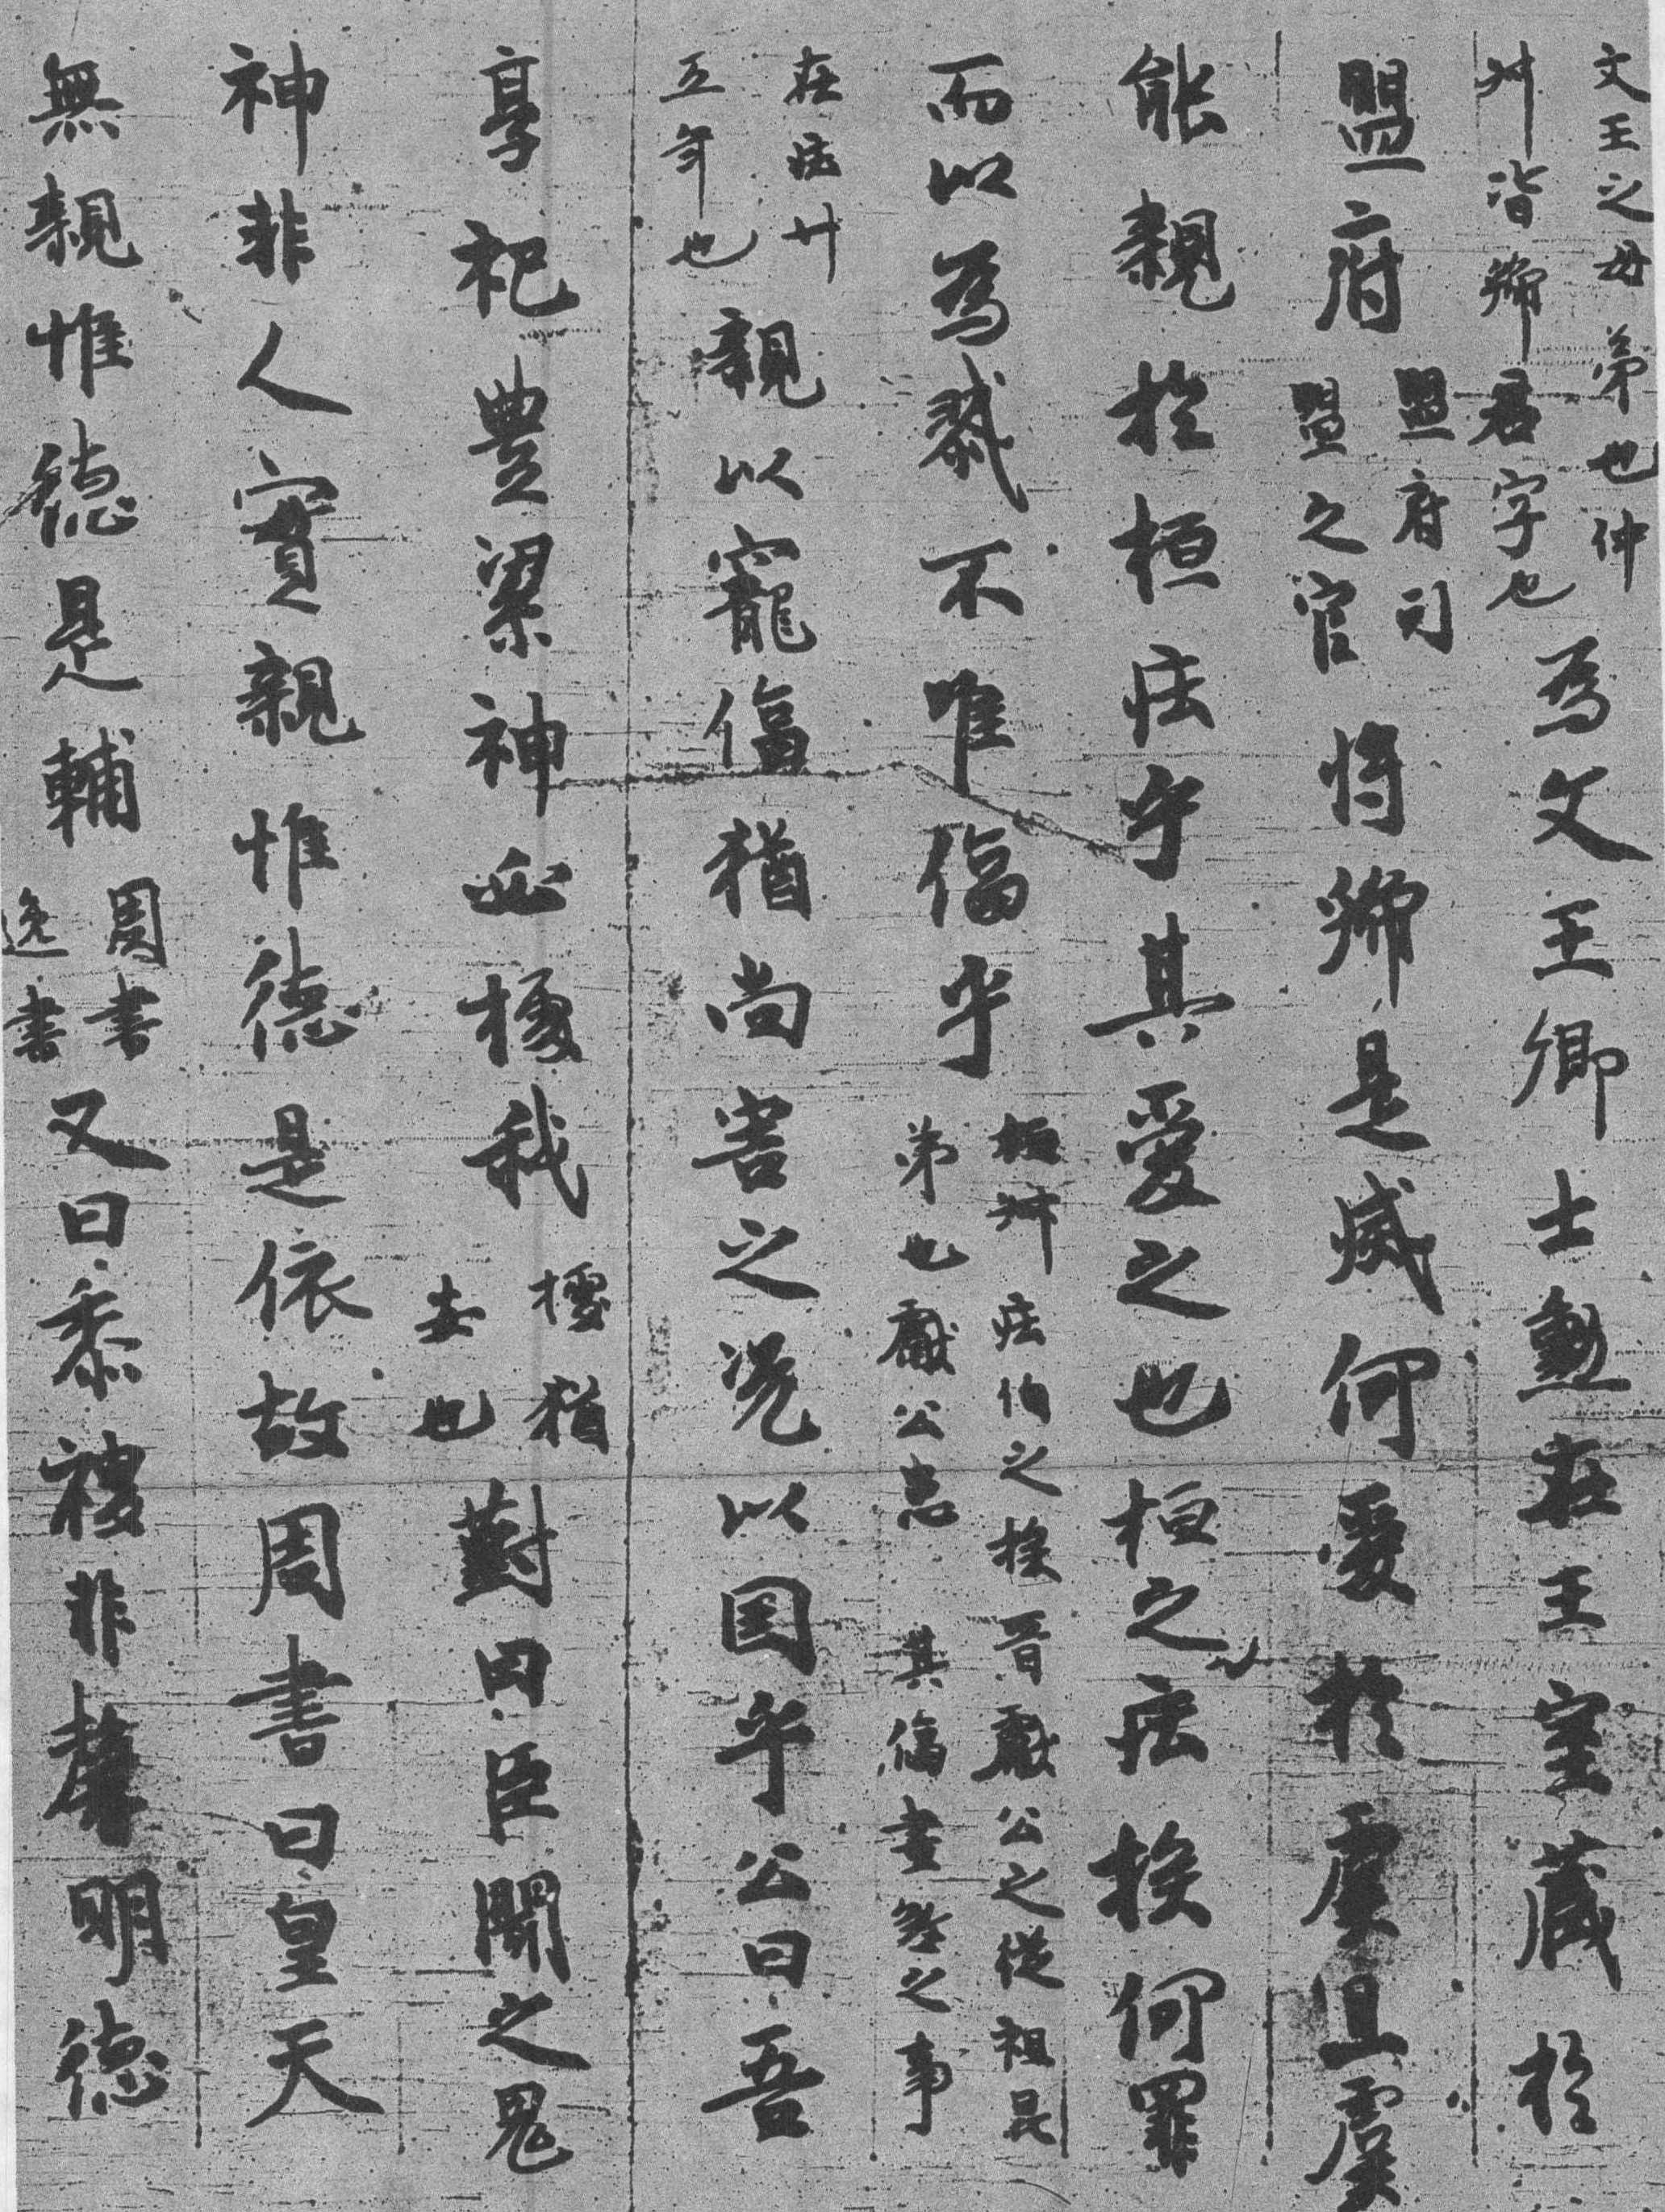 文王之母弟也仲
叔皆虢君字也
為文王卿士勳在王室藏於
盟府
盟府司
盟之官
将虢是滅何愛於虞且虞
能親於桓庄乎其愛之也桓之庄族何罪
而以為戮不唯偪乎
桓叔庄伯之族晋獻公之從祖昆
弟也獻公患其偪盡煞之事
在庄廿
五年也
親以寵偪猶尚害之况以国乎公曰吾
享祀豊潔神必據我
據猶
安也
對曰臣聞之鬼
神非人實親惟德是依故周書曰皇天
無親惟德是輔
周書
逸書
又曰黍稷非馨明德